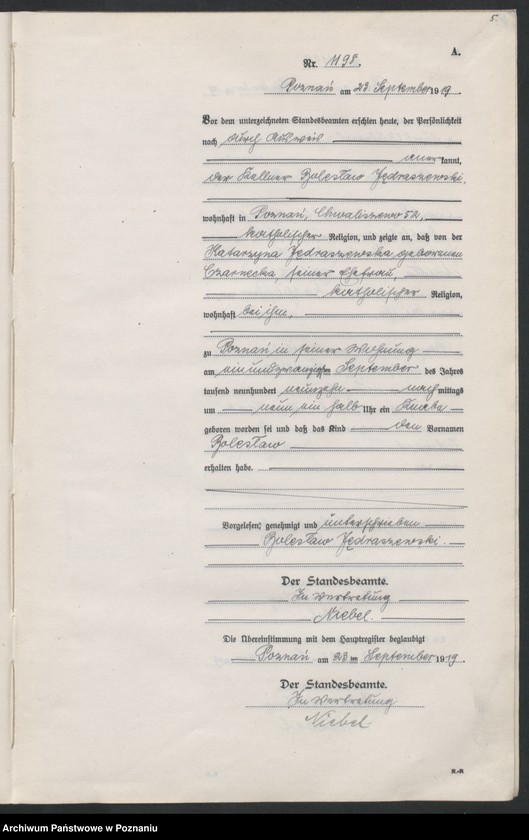 5.
A.
Nr. 1198.
Poznań am 23. September 1919.
Vor dem unterzeichneten Standesbeamten erschien heute, der Persönlichkeit
nach durch Ausweis
anerkannt,
der Kellner Bolesław Jędraszewski,
wohnhaft in Poznań, Chwaliszewo 52,
katholischer Religion, und zeigte an, daß von der
Katarzyna Jędraszewska geborenen
Czarnecka, seiner Ehefrau,
katholischer Religion,
wohnhaft bei ihm,
zu Poznań in seiner Wohnung
am ein und zwanzigsten September des Jahres
tausend neunhundert neunzehn nachmittags
um neun ein halb Uhr ein Knabe
geboren worden sei und daß das Kind den Vornamen
Bolesław
erhalten habe.
Vorgelesen, genehmigt und unterschrieben
Bolesław Jędraszewski.
Der Standesbeamte.
In Vertretung
Niebel.
Die Übereinstimmung mit dem Hauptregister beglaubigt
Poznań am 23ten September 1919.
Der Standesbeamte.
In Vertretung
Niebel
R.-R
Archiwum Państwowe w Poznaniu